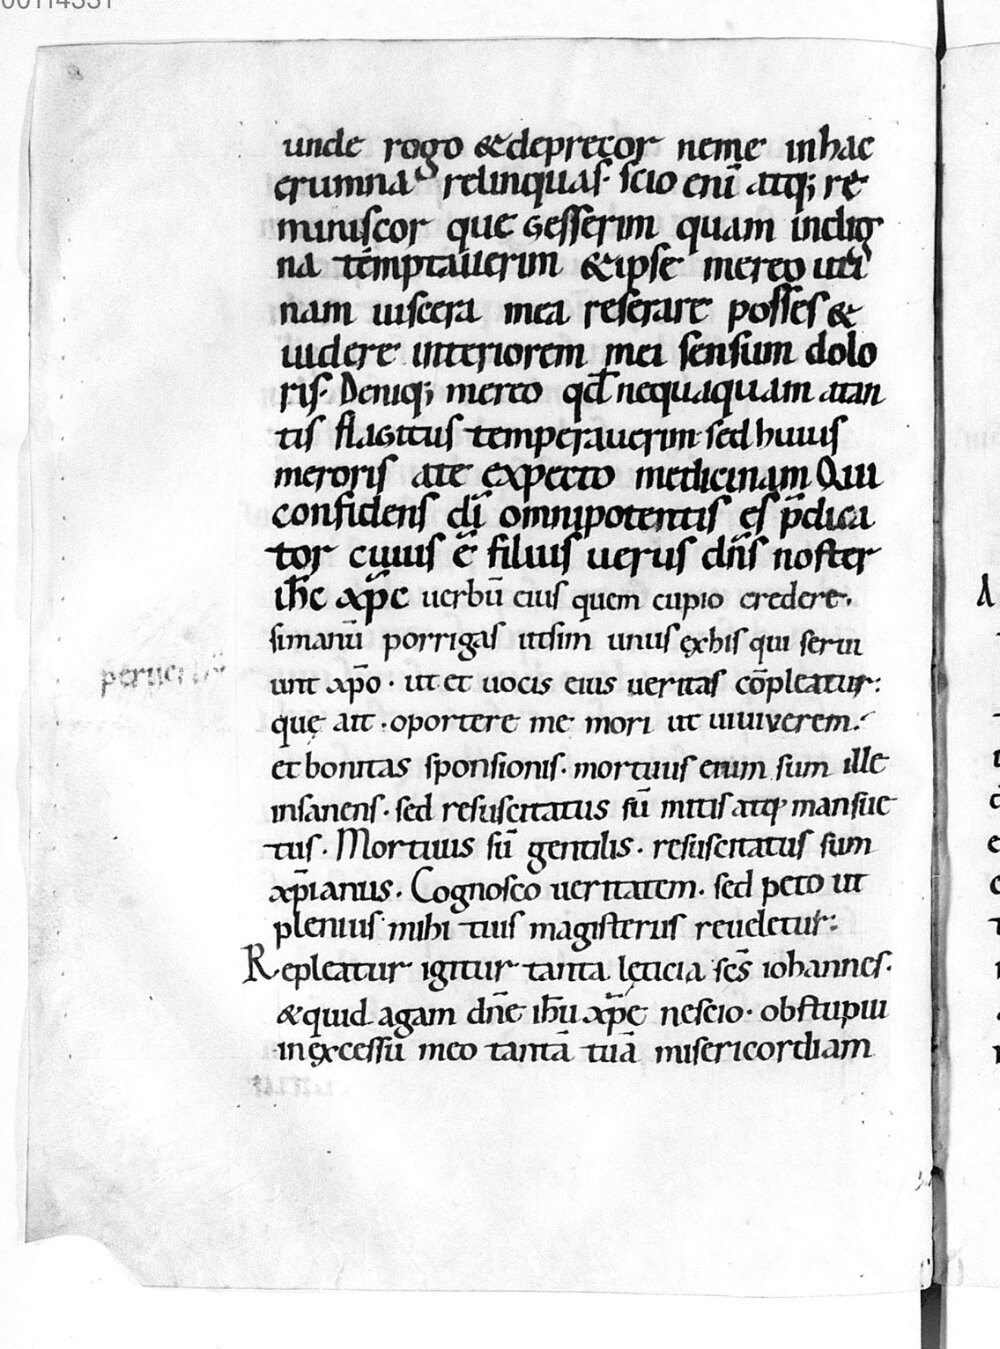 00114331
unde rogo &deprecor neme inhac
erumna relinquas· scio enī atq; re
miniscor que gesserim quam indig
na temptauerim &ipse mereo uti
nam uiscera mea reserare posses &
uidere interiorem mei sensum dolo
ris· Deniq; mereo qđ nequaquam atan
tis flagitiis temperauerim· sed huius
meroris ate expecto medicinam Qui
confidens dī omnipotentis es p̄dica
tor cuius ē filius uerus dn̄s noster
ihc xp̄c uerbū eius quem cupio credere.
simanū porrigas utsim unus ęxhis qui serui
unt xp̄o · ut et uocis eius ueritas cōpleatur:
quę ait · oportere me mori ut uiuiverem:
et bonitas sponsionis· mortuus enim sum ille
insanens· sed resuscitatus sū mitis atq; mansue
tus · Mortuus sū gentilis · resuscitatus sum
xp̄ianus · Cognosco ueritatem · sed peto ut
plenius mihi tuis magisteriis reueletur:
Repleatur igitur tanta lęticia scs̄ iohannes·
&quid agam dn̄e ihū xp̄e nescio · obstupui
inęxcessu meo tantā tuā misericordiam